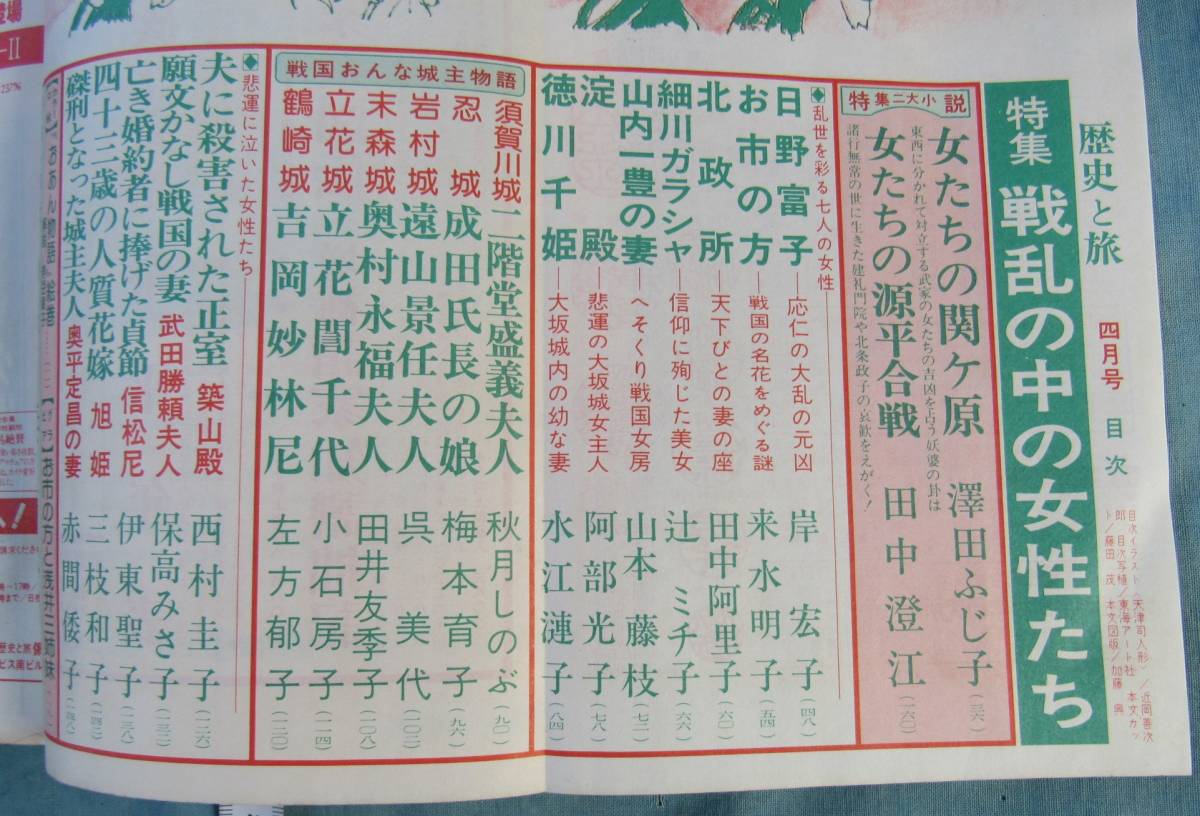 歴史と旅
四月号
目次
目次イラスト〈天津司人形〉/近岡善次
郎/目次写植/東海アート社 本文カッ
ト/藤田 茂 本文図版/加藤 興
特集 戦乱の中の女性たち
特集二大小説
女たちの関ケ原 澤田ふじ子(三六)
東西に分かれて対立する武家の女たちの吉凶を占う妖婆の卦は
女たちの源平合戦 田中澄江(一六〇)
諸行無常の世に生きた建礼門院や北条政子の哀歓をえがく!
◆乱世を彩る七人の女性
日野富子―応仁の大乱の元凶 岸宏子(四八)
お市の方―戦国の名花をめぐる謎 来水明子(五四)
北政所―天下びとの妻の座 田中阿里子(六〇)
細川ガラシャ―信仰に殉じた美女 辻ミチ子(六六)
山内一豊の妻―へそくり戦国女房 山本藤枝(七二)
淀殿―悲運の大坂城女主人 阿部光子(七八)
徳川千姫―大坂城内の幼な妻 水江漣子(八四)
戦国おんな城主物語
須賀川城 二階堂盛義夫人 秋月しのぶ(九〇)
忍城 成田氏長の娘 梅本育子(九六)
岩村城 遠山景任夫人 呉美代(一〇二)
末森城 奥村永福夫人 田井友季子(一〇八)
立花城 立花誾千代 小石房子(一一四)
鶴崎城 吉岡妙林尼 左方郁子(一二〇)
◆悲運に泣いた女性たち
夫に殺害された正室 築山殿 西村圭子(一二六)
願文かなし戦国の妻 武田勝頼夫人 保高みさ子(一三二)
亡き婚約者に捧げた貞節 信松尼 伊東聖子(一三八)
四十三歳の人質花嫁 旭姫 三枝和子(一四二)
磔刑となった城主夫人 奥平定昌の妻 赤間倭子(一四八)
『おあん物語』絵巻
【グラビア】お市の方と浅井三姉妹